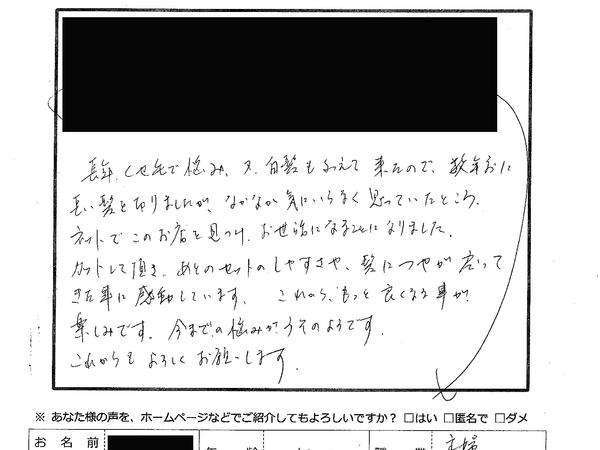 長年、くせ毛で悩み、又、白髪もふえて来たので、数年前に
長い髪を切りましたが、なかなか気にいらなく思っていたところ、
ネットでこのお店を見つけ、お世話になることになりました。
カットして頂き、あとのセットのしやすさや、髪につやが戻って
きた事に感動しています。 これから、もっと良くなる事が
楽しみです。今までの悩みがうそのようです。
これからもよろしくお願いします。
※ あなた様の声を、ホームページなどでご紹介してもよろしいですか？ □はい □匿名で □ダメ
お 名 前 主婦